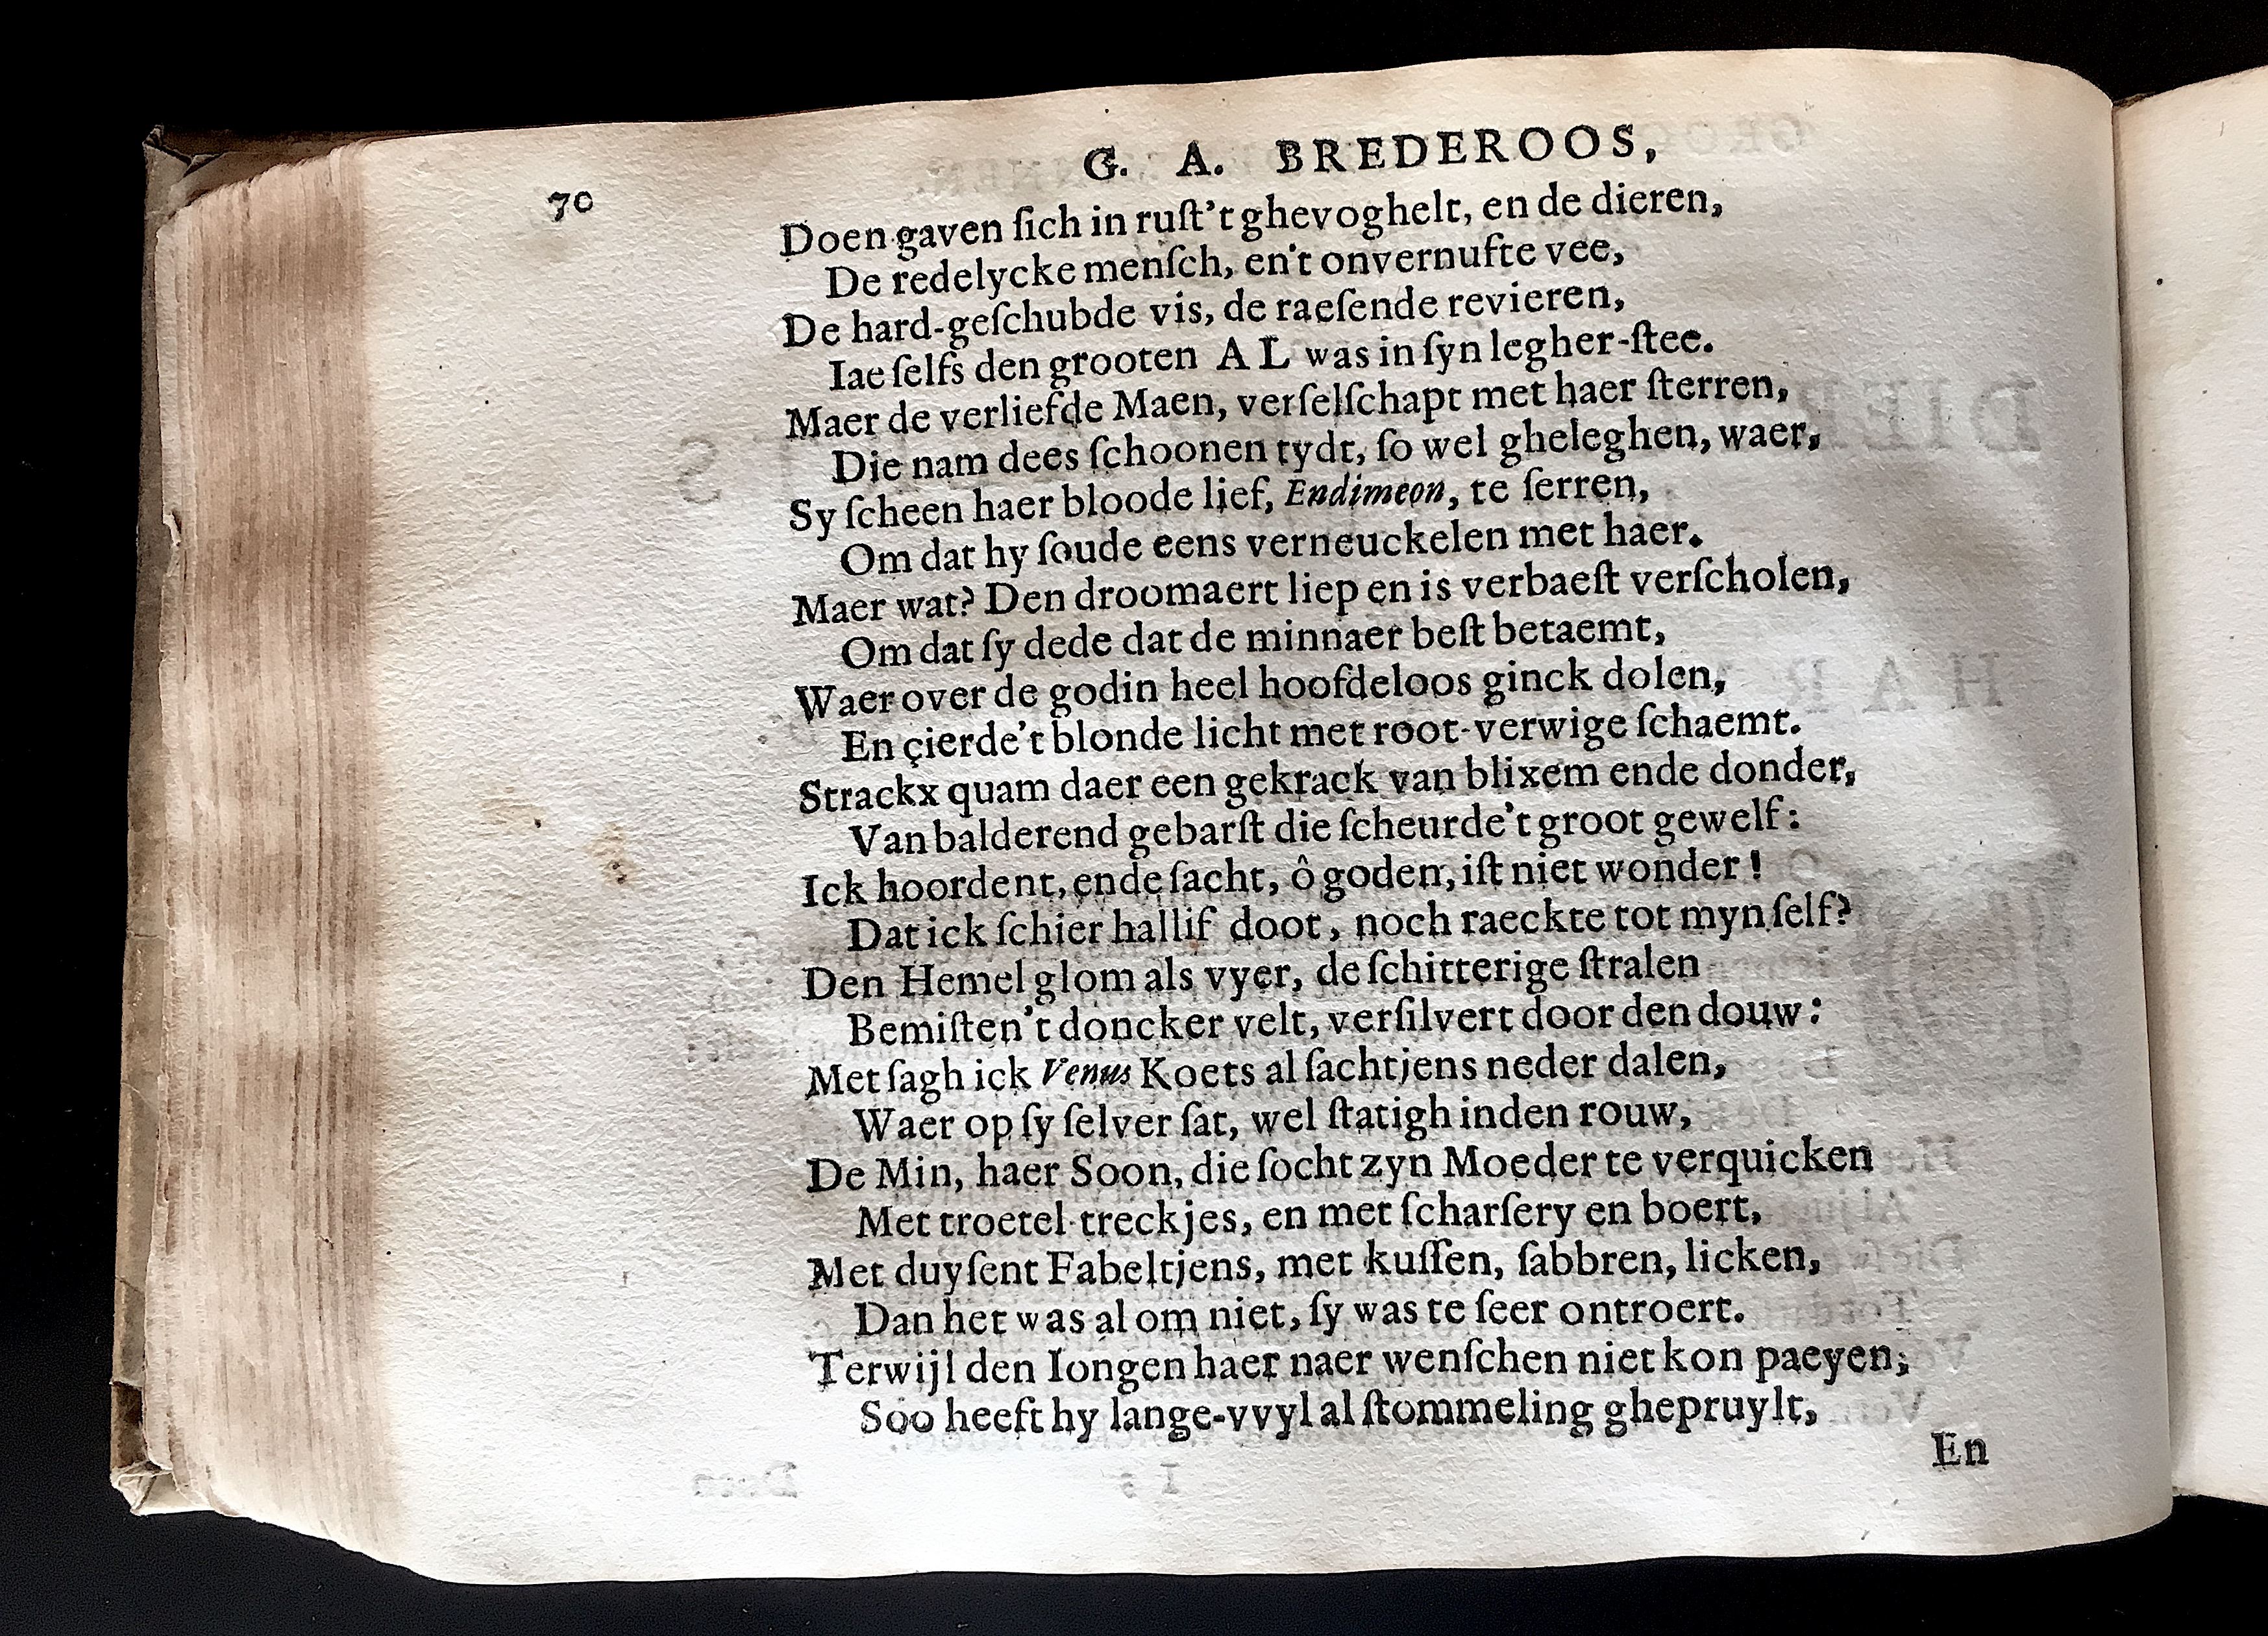 G. A. BREDEROOS,
70
Doen gaven ſich in ruſt't ghevoghelt, en de dieren,
De redelycke menſch, en't onvernufte vee,
De hard-geſchubde vis, de raeſende revieren,
Iae ſelfs den grooten AL was in ſyn legher-ſtee.
Maer de verliefde Maen, verſelſchapt met haer ſterren,
Die nam dees ſchoonen tydt, ſo wel gheleghen, waer,
Sy ſcheen haer bloode lief, Endimeon, te ſerren,
Om dat hy ſoude eens verneuckelen met haer.
Maer wat? Den droomaert liep en is verbaeſt verſcholen,
Om dat ſy dede dat de minnaer beſt betaemt,
Waer over de godin heel hoofdeloos ginck dolen,
En çierde't blonde licht met root-verwige ſchaemt.
Strackx quam daer een gekrack van blixem ende donder,
Van balderend gebarſt die ſcheurde't groot gewelf:
Ick hoordent, ende ſacht, ô goden, iſt niet wonder!
Dat ick ſchier hallif doot, noch raeckte tot myn ſelf?
Den Hemel glom als vyer, de ſchitterige ſtralen
Bemiſten't doncker velt, verſilvert door den douw:
Met ſagh ick Venus Koets al ſachtjens neder dalen,
Waer op ſy ſelver ſat, wel ſtatigh inden rouw,
De Min, haer Soon, die ſocht zyn Moeder te verquicken
Met troetel-treckjes, en met ſcharſery en boert,
Met duyſent Fabeltjens, met kuſſen, ſabbren, licken,
Dan het was al om niet, ſy was te ſeer ontroert.
Terwijl den Iongen haer naer wenſchen niet kon paeyen;
Soo heeft hy lange-vvyl al ſtommeling ghepruylt,
En